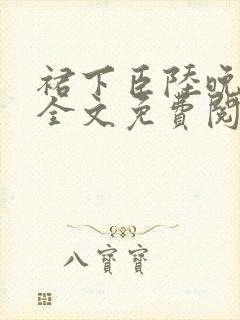 裙下臣陸晚
全文免費閱
八寶寶